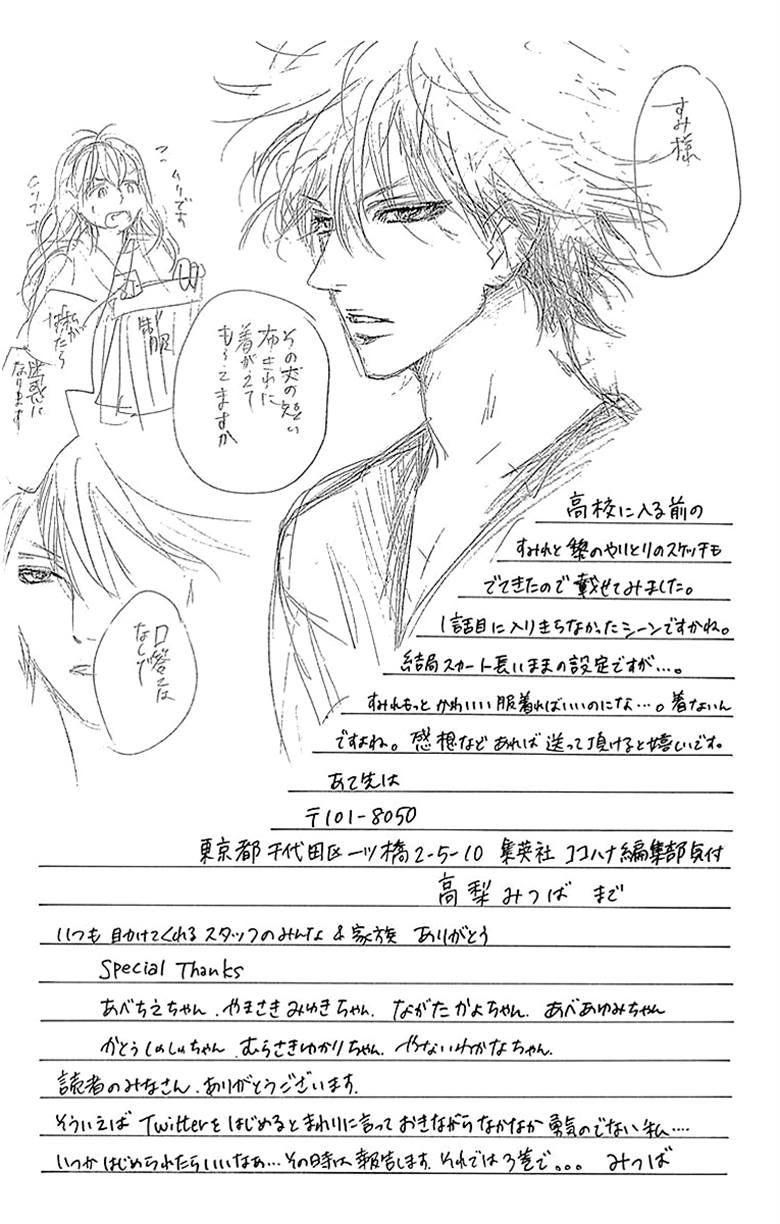 すみ様
ムリです
ムリです
制服
私が
はいたら
迷惑に
なります
その丈の短い
布きれに
着がえて
もらえますか
口答えは
なしで
高校に入る前の
すみれと黎のやりとりのスケッチも
でてきたので載せてみました。
1話目に入りきらなかったシーンですかね。
結局スカート長いままの設定ですが…。
すみれもっとかわいい服着ればいいのにな…。着ないん
ですよね。感想などあれば送って頂けると嬉しいです。
あて先は
〒101-8050
東京都千代田区一ツ橋2-5-10 集英社 ココハナ編集部気付
高梨みつば まで
いつも助けてくれるスタッフのみんな&家族 ありがとう
Special Thanks
あべちえちゃん.やまさきみゆきちゃん.ながたかよちゃん.あべあゆみちゃん
かとうしゅしゅちゃん.むらさきゆかりちゃん.やないわかなちゃん.
読者のみなさん.ありがとうございます.
そういえばTwitterをはじめるとまわりに言っておきながらなかなか勇気のでない私….
いつかはじめられたらいいなぁ…その時は報告します.それでは3巻で。。。 みつば